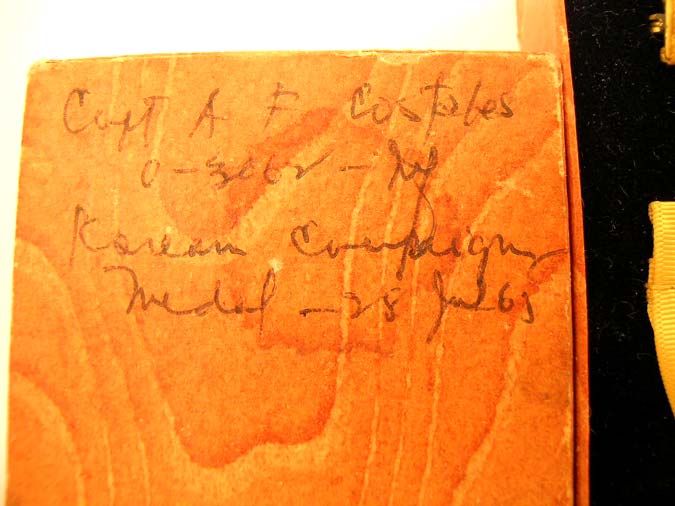 Capt A F Costales
0-3662 - 
Korean Campaign
Medal - 28 Jul 63